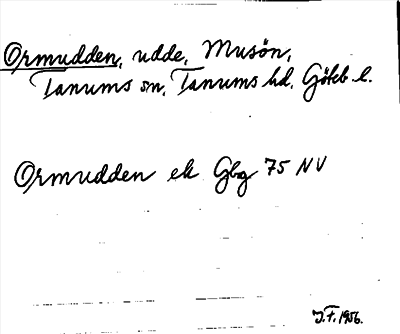 Ormudden, udde, Musön,
Tanums sn, Tanums hd, Göteb. l.
Ormudden ek Gbg 75 NV
J.F. 1956.